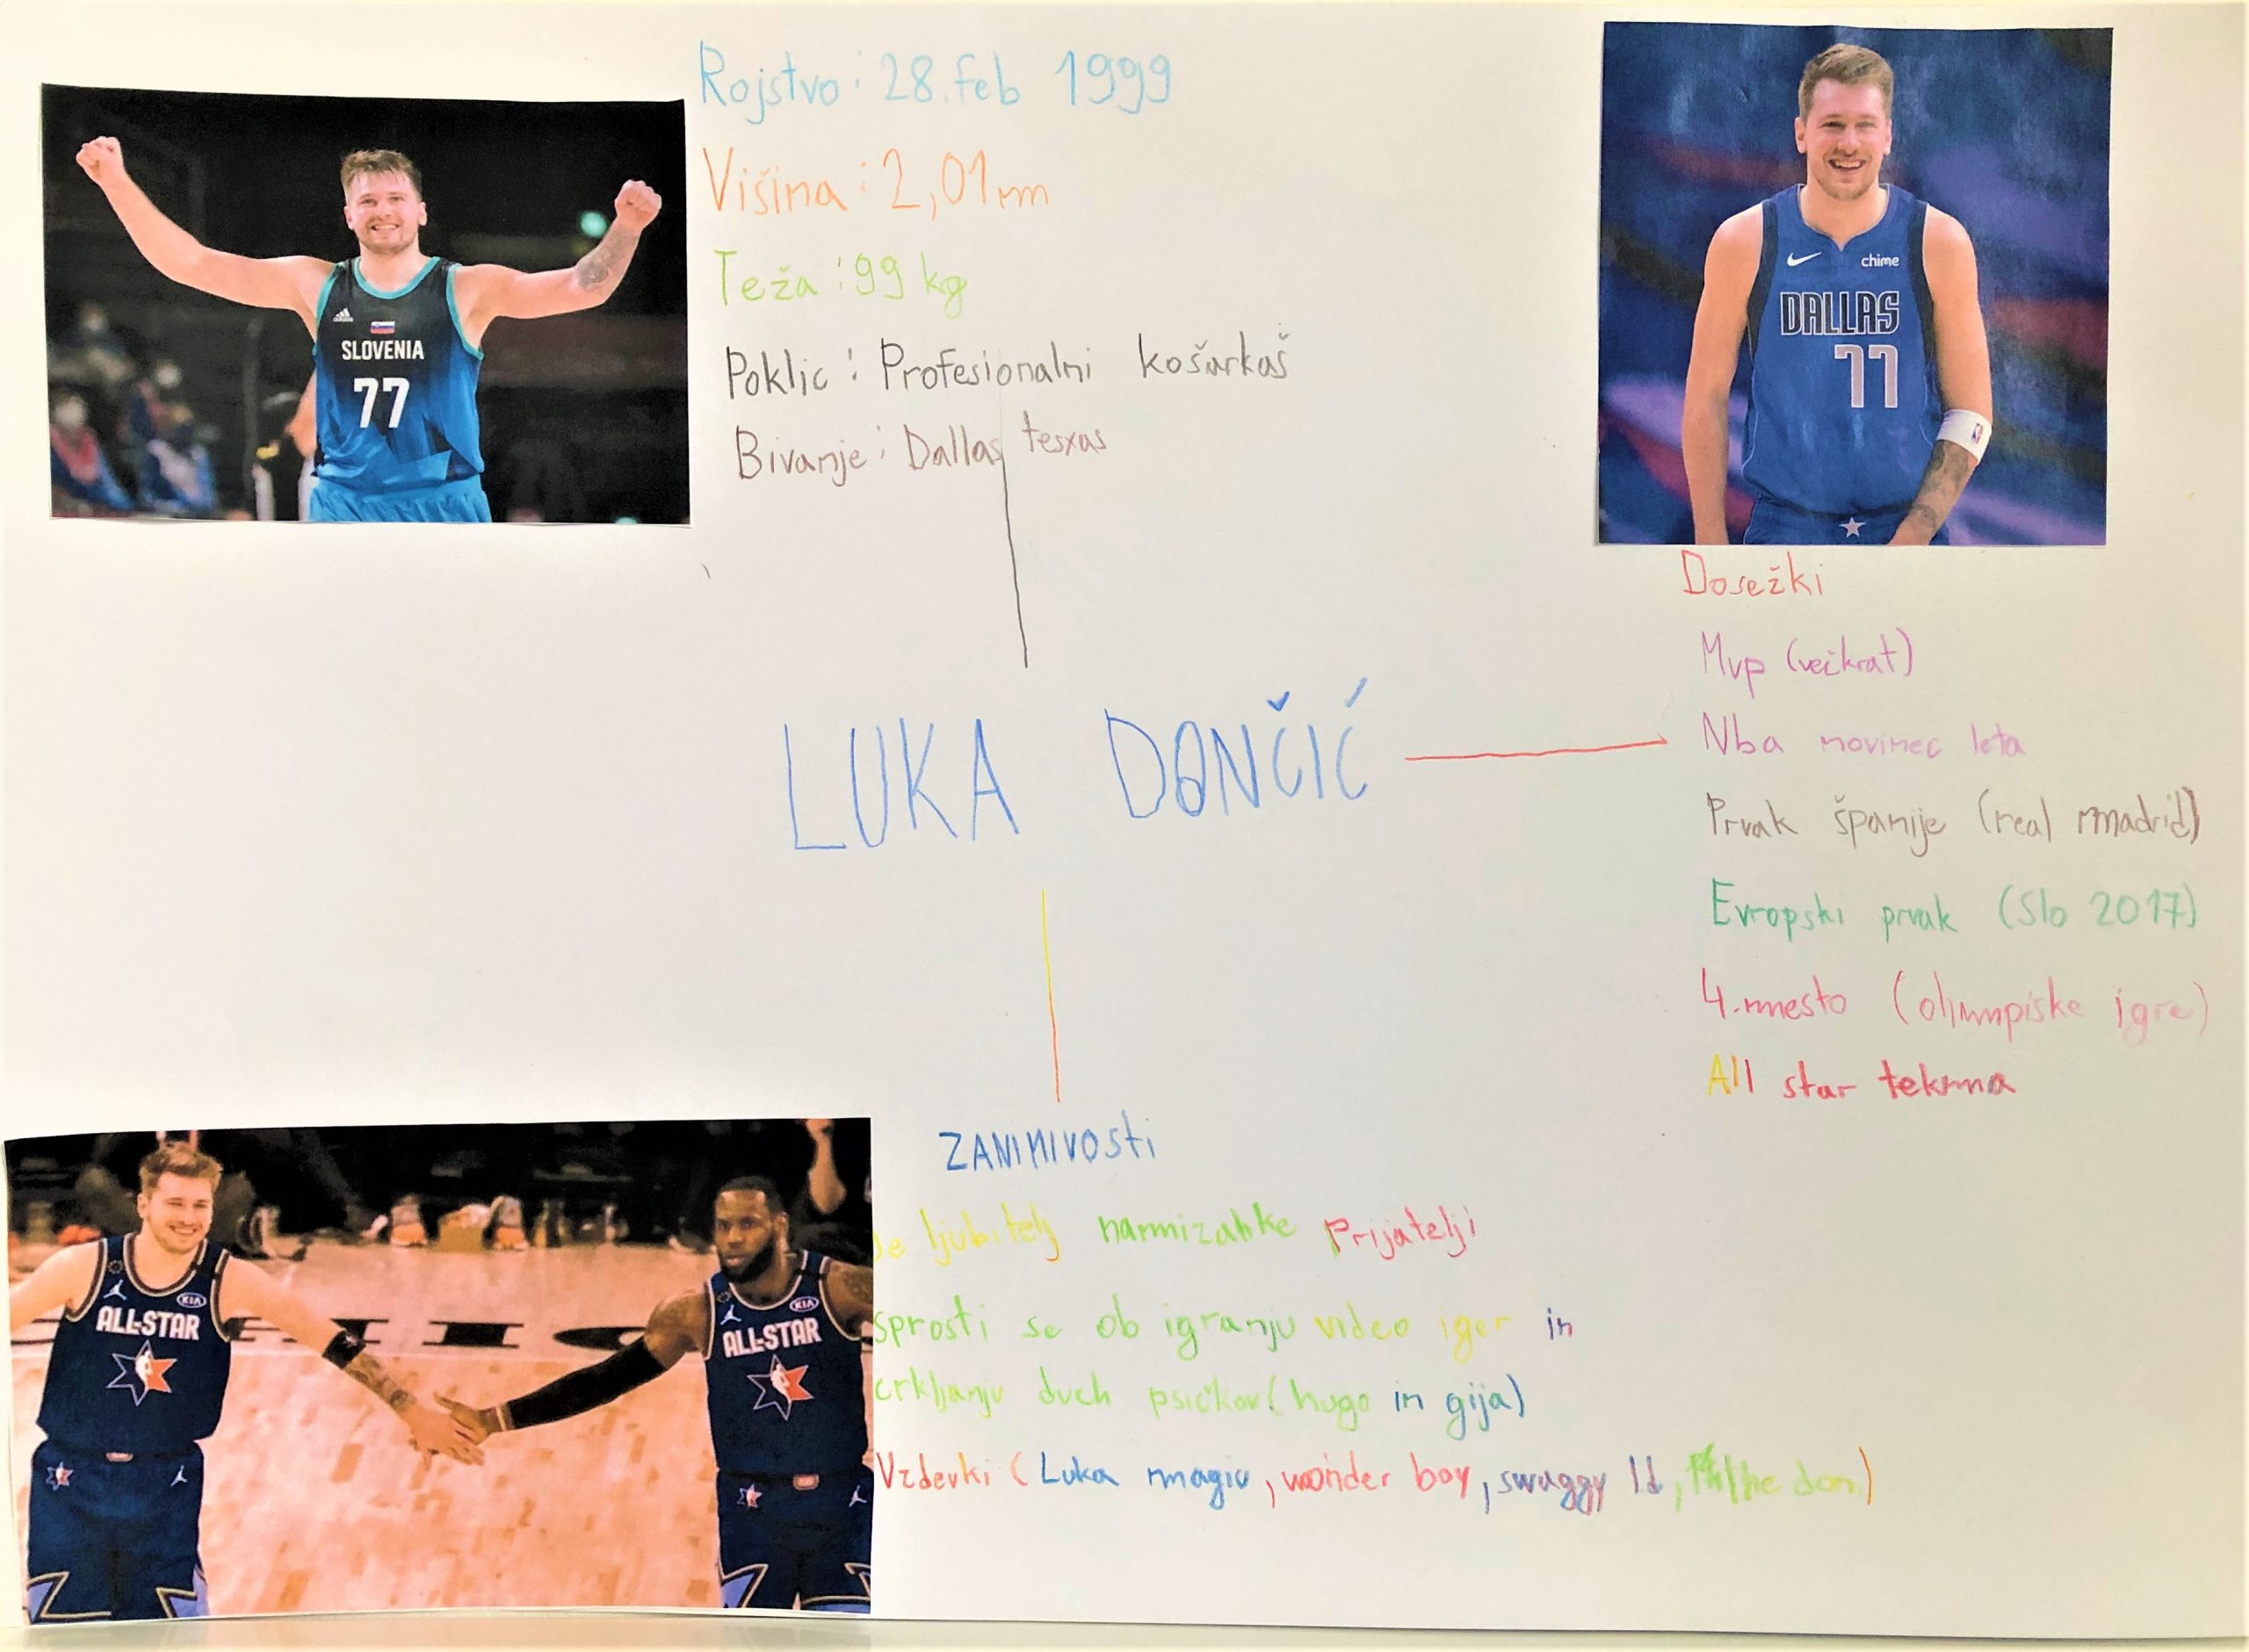 Rojstvo: 28. feb 1999
Višina: 2,01m
Teža: 99 kg
Poklic: Profesionalni košarkaš
Bivanje: Dallas tesxas
SLOVENIA
77
chime
DALLAS
77
LUKA DONČIĆ
Dosežki
Mvp (večkrat)
Nba novinec leta
Prvak španije (real madrid)
Evropski prvak (Slo 2017)
4. mesto (olimpiske igre)
All star tekma
ZANIMIVOSTi
Je ljubitelj namizahke Prijatelji
sprosti se ob igranju video iger in
crkljanju dveh psičkov (hugo in gija)
Vzdevki (Luka magic, wonder boy, swaggy ld, the don)
KIA
ALL-STAR
KIA
ALL-STAR